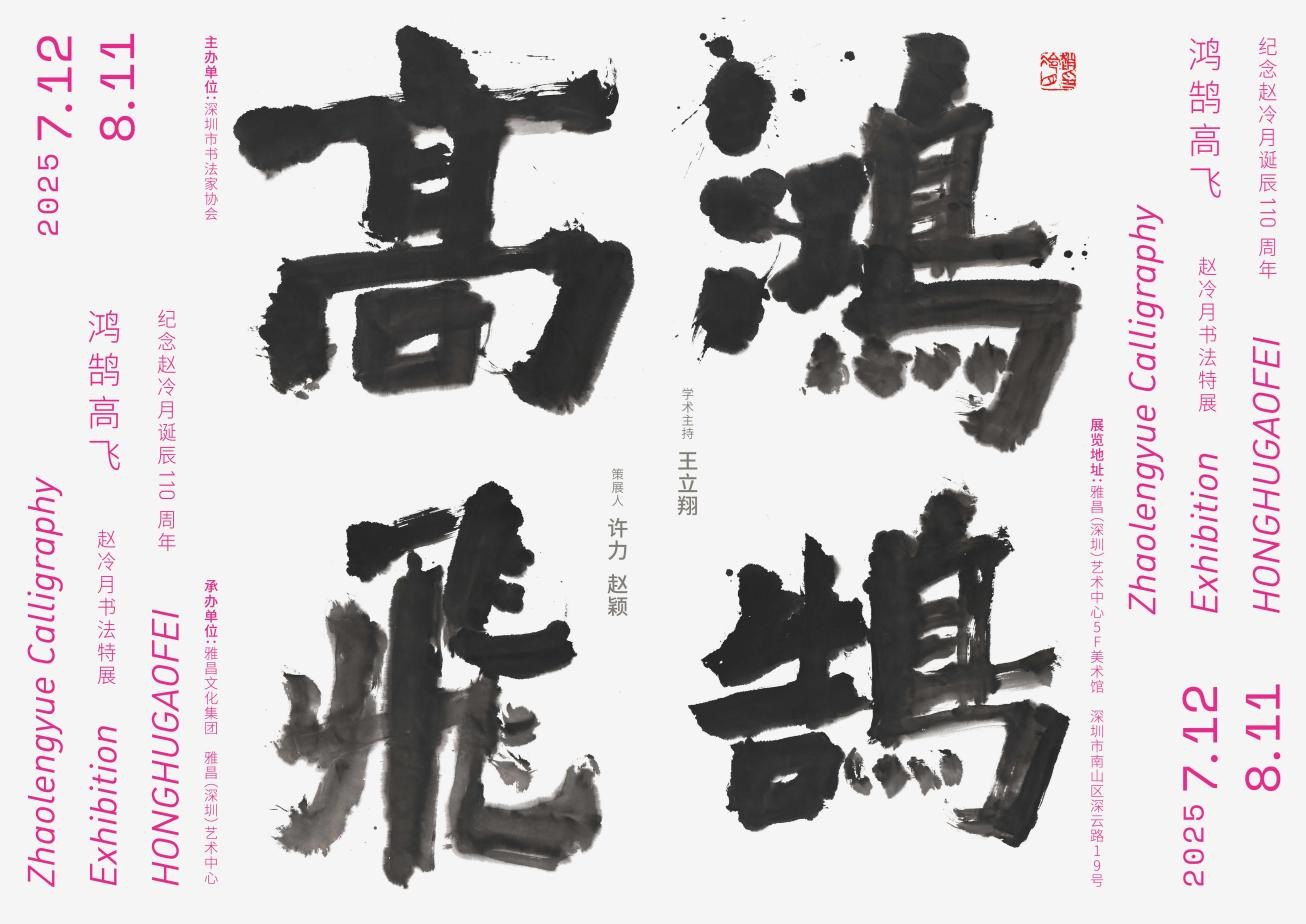 鴻鵠
高飛
纪念赵冷月诞辰110周年
鸿鹄高飞 赵冷月书法特展
HONGHUGAOFEI
Exhibition
Zhaolengyue Calligraphy
2025 7.12
8.11
展览地址：雅昌（深圳）艺术中心5F美术馆 深圳市南山区深云路19号
学术主持 王立翔
策展人 许力 赵颖
主办单位：深圳市书法家协会
承办单位：雅昌文化集团 雅昌（深圳）艺术中心
纪念赵冷月诞辰110周年
鸿鹄高飞 赵冷月书法特展
HONGHUGAOFEI
Exhibition
Zhaolengyue Calligraphy
2025 7.12
8.11